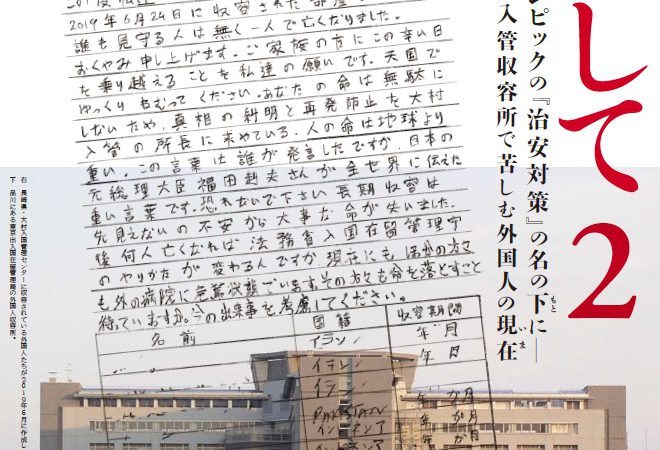 して 2
ピックの『治安対策』の名の下に―
もと
入管収容所で苦しむ外国人の現在
いま
2019年6月24日に収容された部屋
誰も見守る人は無く一人で亡くなりました。
おくやみ申し上げます。ご家族の方にこの辛い日
を乗り越えることを私達の願いです。天国で
ゆっくりねむってください。あなたの命は無駄に
しないため、真相の糾明と再発防止を大村
入管の所長に求めている。人の命は地球より
重い。この言葉は誰が発言したですか、日本の
元総理大臣福田赳夫さんが全世界に伝えた
重い言葉です。恐れないで下さい長期収容は
先見えないの不安から大事な命が失いました。
後何人亡くなれば法務省入国在留管理庁
のやりかたが変わるんですか現在にもほかの方々
も外の病院に危篤状態でいます。その方々も命を落とすこと
待っていますか。今の出来事を考慮してください。
名前 国籍 収容期間
イラン 年 月
年 月
イラン
イラン
PAKISTAN
インドネシア
右 長崎県・大村入国管理センターに収容されている外国人たちが2019年6月に作成し
下 品川にある東京出入国在留管理局の外国人収容所。